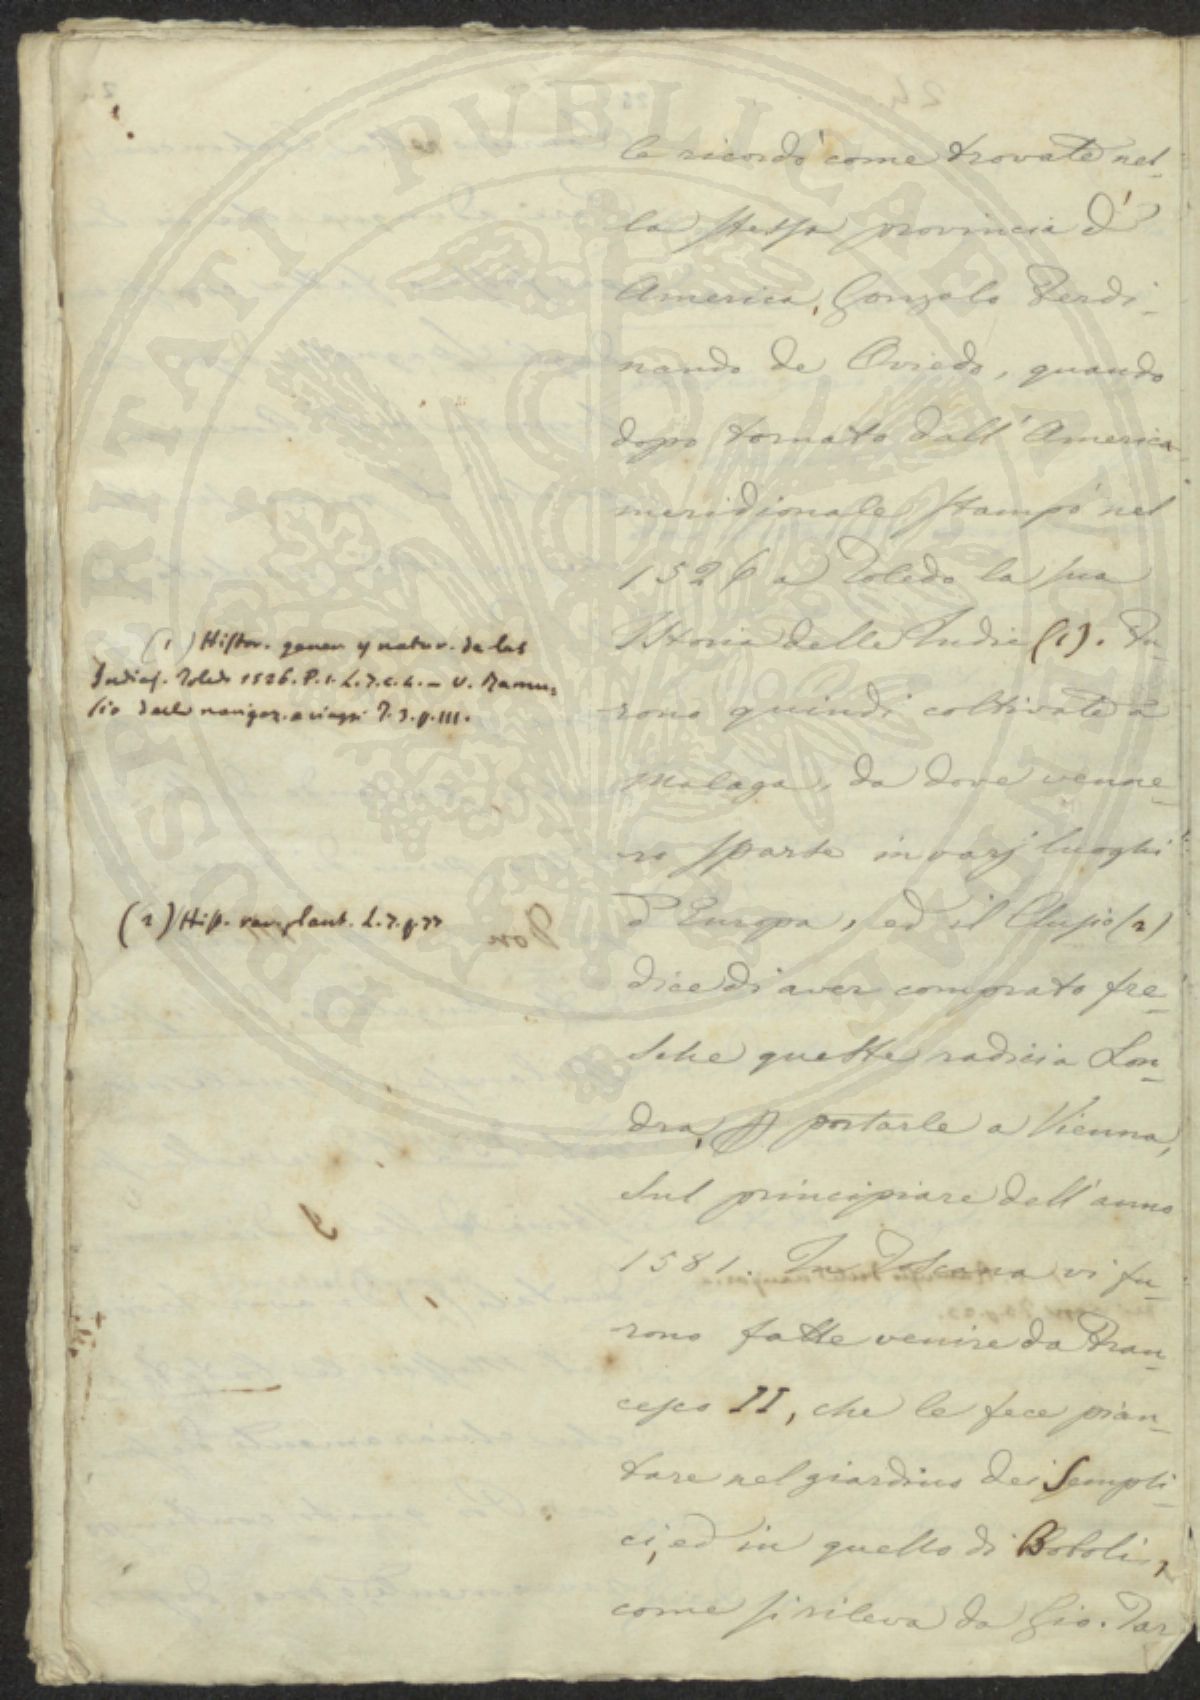 le ricordò come trovate nel-
la stessa provincia d'
America, Gonzalo Ferdi-
nando de Oviedo, quando
dopo tornato dall'America
meridionale stampò nel
1526 a Toledo la sua
Istoria delle Indie (1). Fu-
rono quindi coltivate a
Malaga, da dove venne-
ro sparte in varj luoghi
d'Europa, ed il Clusio (2)
dice di aver comprato fre-
sche queste radici a Lon-
dra, p portarle a Vienna,
sul principiare dell'anno
1581. In Toscana vi fu-
rono fatte venire da Fran-
cesco II, che le fece pian-
tare nel giardino dei Sempli-
ci, ed in quello di Boboli,
come si rileva da Gio. Tar
(1) Histor. gener y natur. de las
Indias. Toledo 1526. P. 1. L. 7. c. 4. — V. Ramu-
sio delle navigaz. e viaggi T. 3. p. 111.
(2) Hist. rar. plant. L. 7. p. 77
PROSPERITATI PVBLICAE